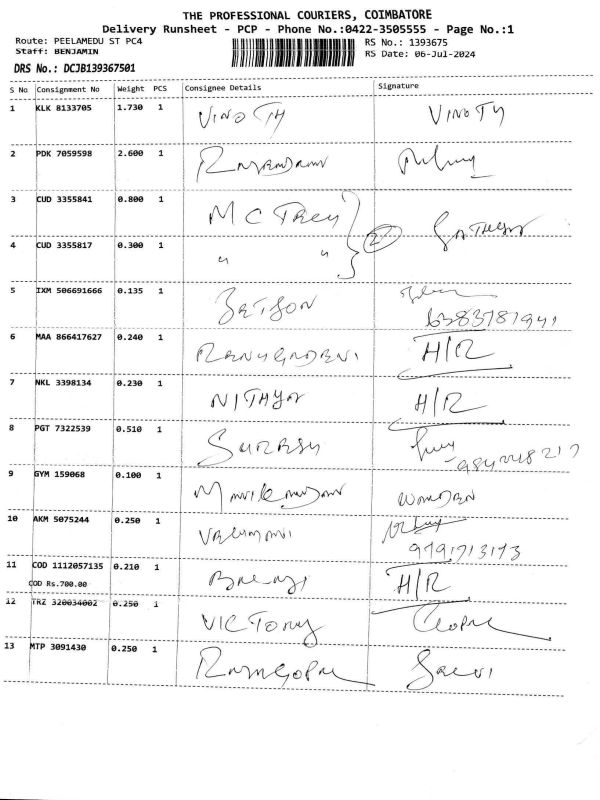 THE PROFESSIONAL COURIERS, COIMBATORE
Delivery Runsheet - PCP - Phone No.:0422-3505555 - Page No.:1
Route: PEELAMEDU ST PC4 RS No.: 1393675
Staff: BENJAMIN RS Date: 06-Jul-2024
DRS No.: DCJB139367501
S No Consignment No Weight PCS Consignee Details Signature
1 KLK 8133705 1.730 1 VINOTH VINOTH
2 PDK 7059598 2.600 1
3 CUD 3355841 0.800 1 MCTREY
4 CUD 3355817 0.300 1 " " 2 SATHYA
5 IXM 506691666 0.135 1
6383781941
6 MAA 866417627 0.240 1 RENUGADEVI H/R
7 NKL 3398134 0.230 1 NITHYA H/R
8 PGT 7322539 0.510 1 SURESH
9 GYM 159068 0.100 1 MANIKANDAN WARDEN
10 AKM 5075244 0.250 1 VALUMANI
11 COD 1112057135 0.210 1 BALAJI H/R
COD Rs.700.00
12 TRZ 320034002 0.250 1 VICTORY
13 MTP 3091430 0.250 1 RAJAGOPAL SELVI